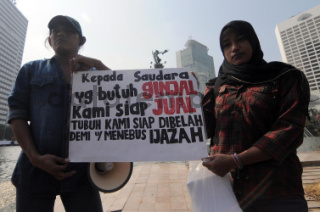 Kepada Saudara
yg butuh GINJAL
Kami siap JUAL
TUBUH KAMI SIAP DIBELAH
DEMI U/ MENEBUS IJAZAH